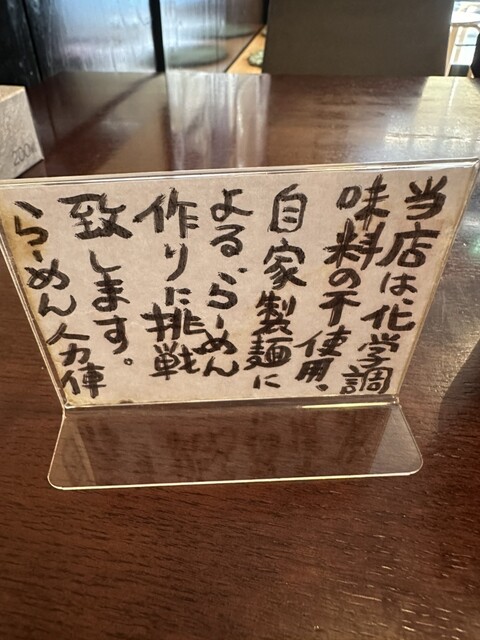 当店は、化学調
味料の不使用、
自家製麺に
よる、らーめん
作りに挑戦
致します。
らーめん人力俥
200W